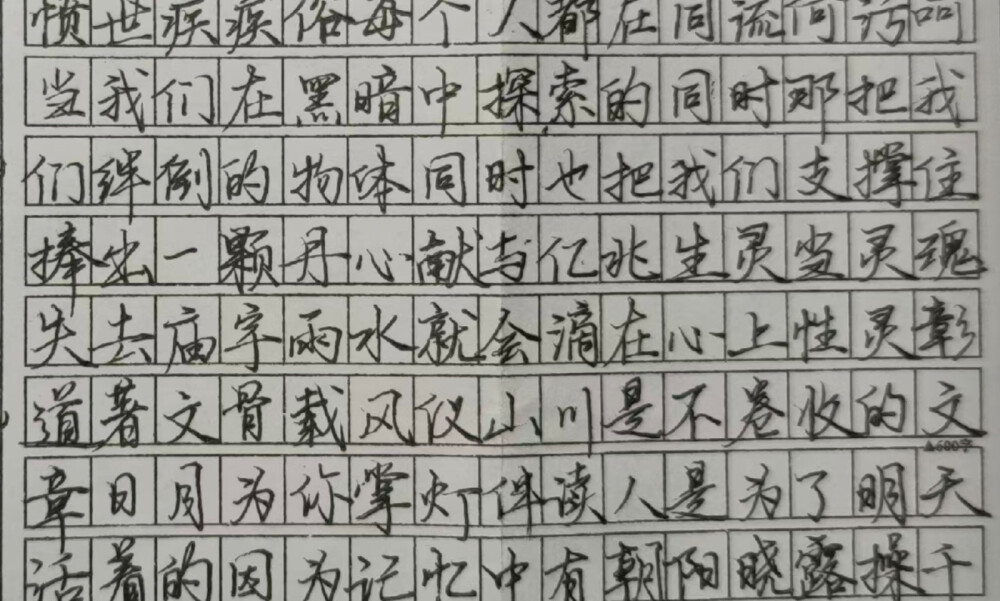 愤世疾疾俗每个人都在同流同污可
当我们在黑暗中探索的同时那把我
们绊倒的物体同时也把我们支撑住
捧出一颗丹心献与亿兆生灵当灵魂
失去庙宇雨水就会滴在心上性灵彰
道著文骨载风仪山川是不卷收的文
△600字
章日月为你掌灯伴读人是为了明天
活着的因为记忆中有朝阳晓露操千